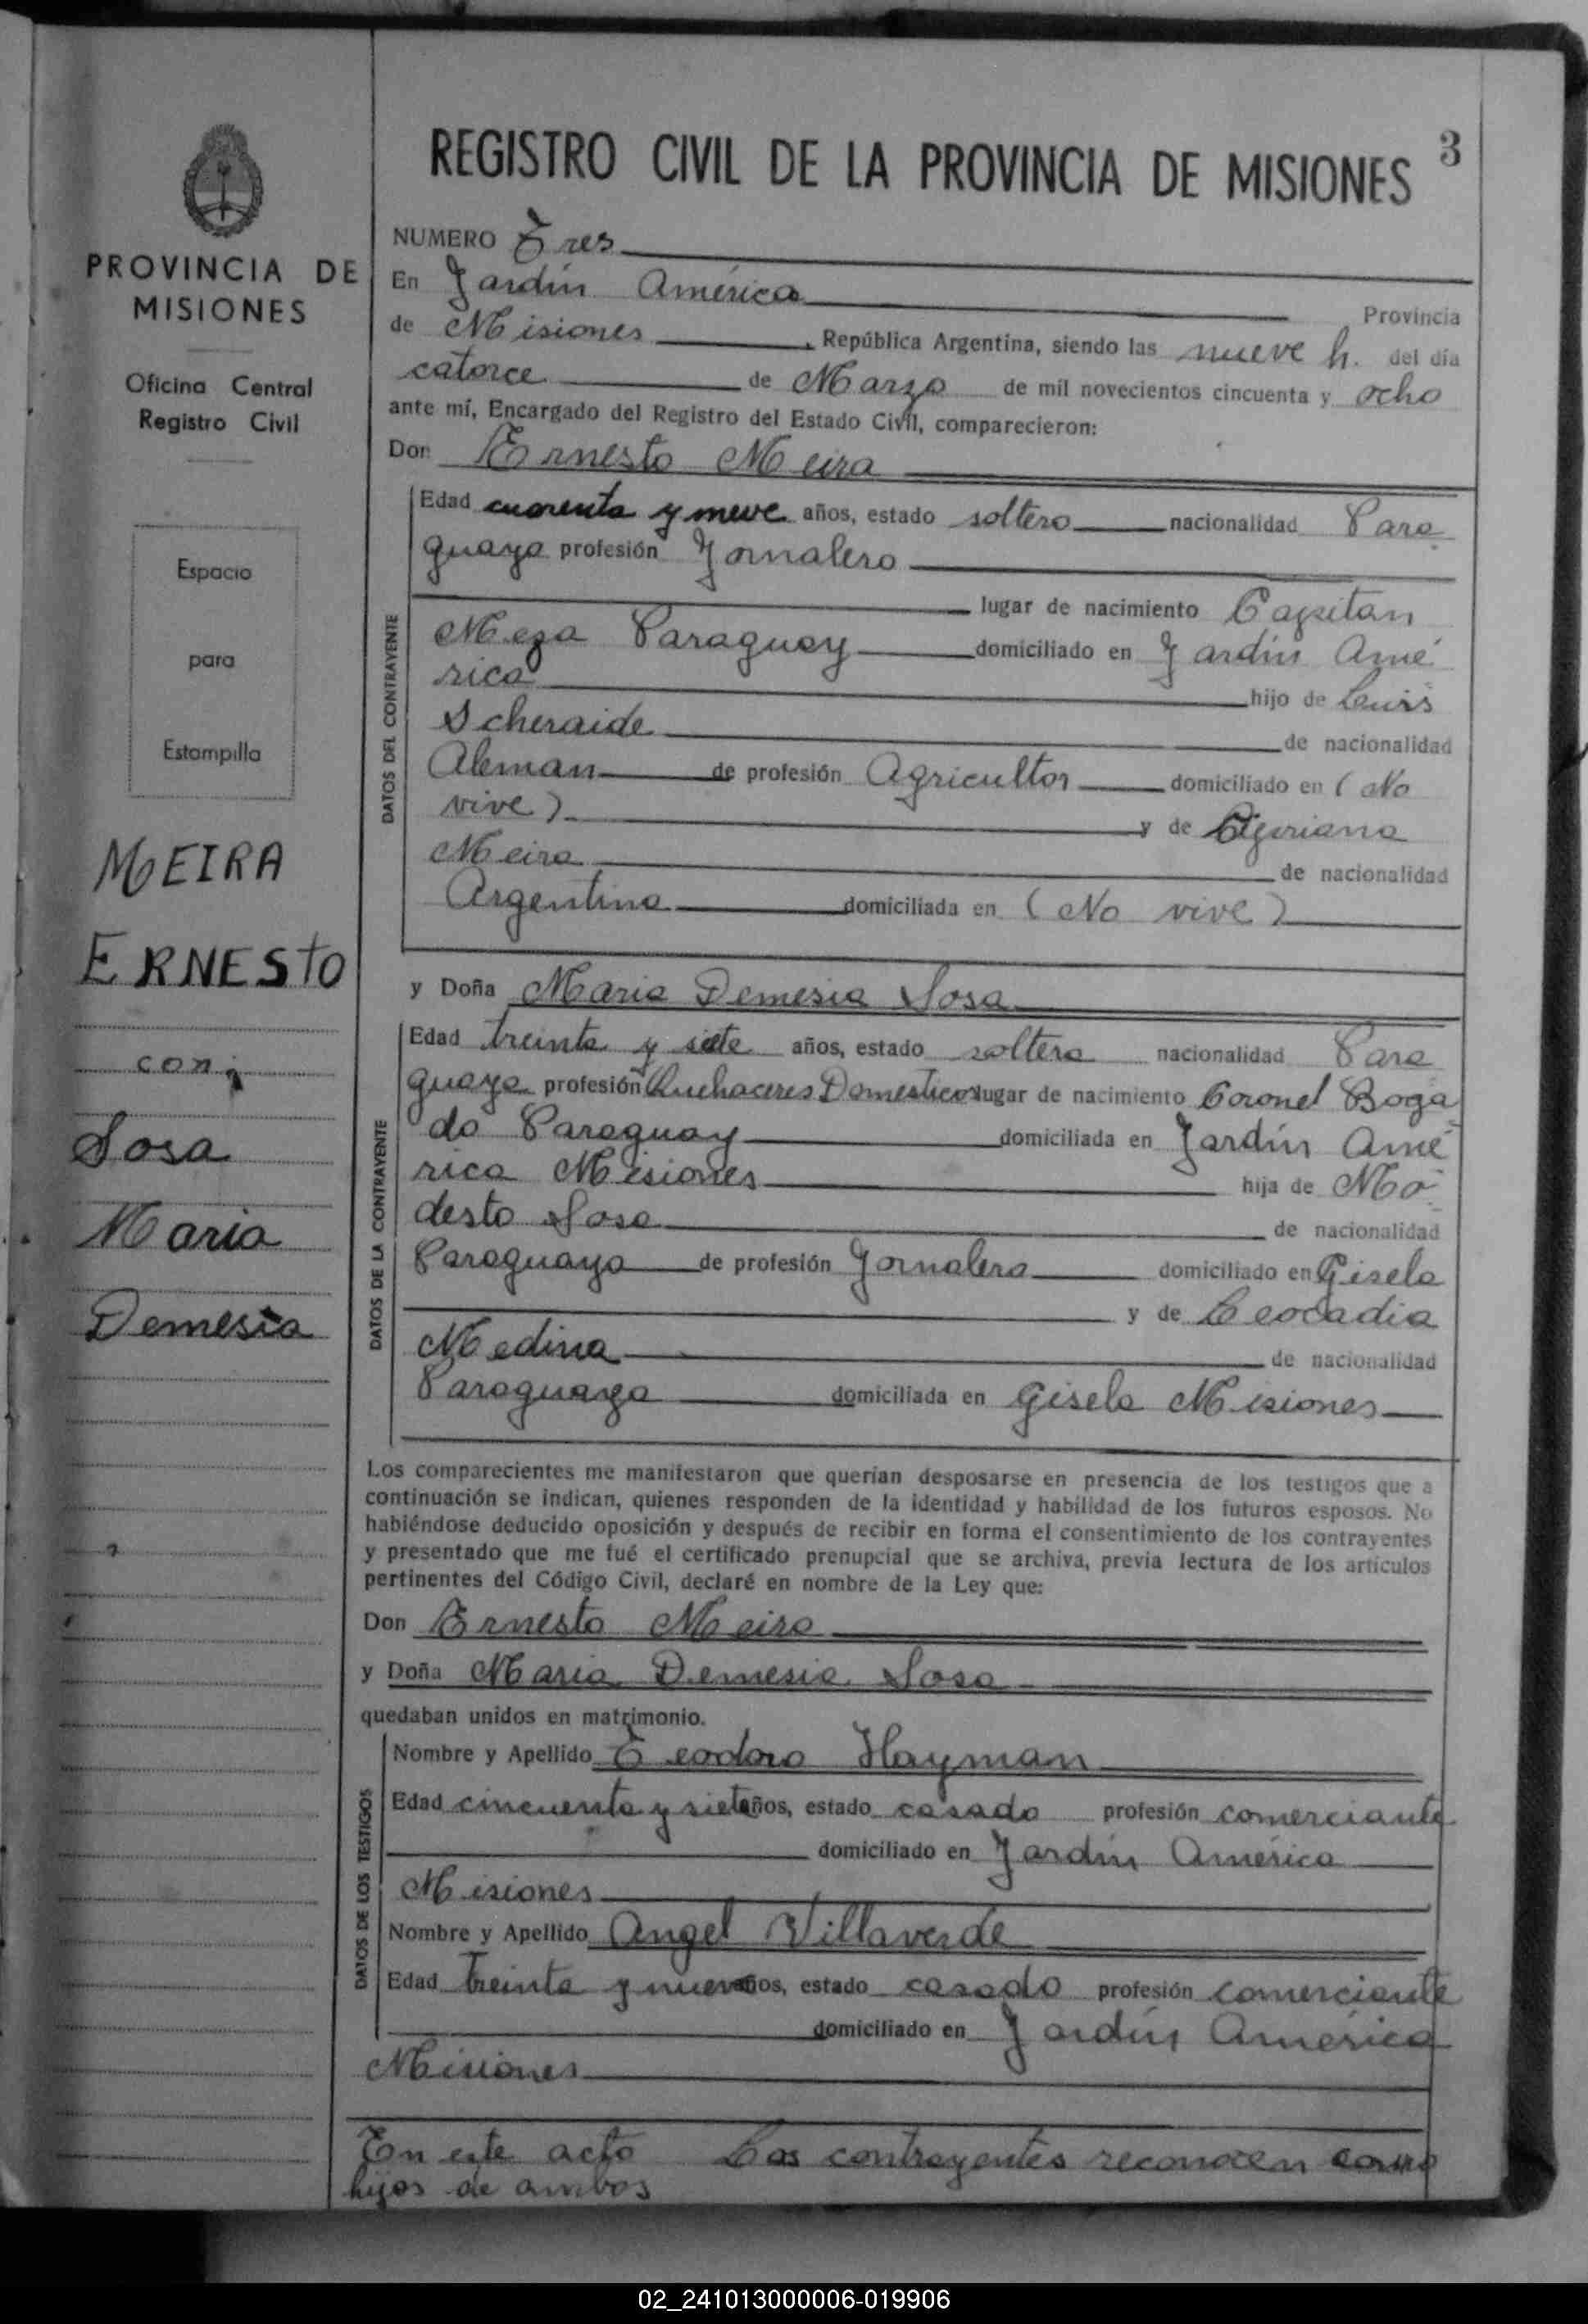 REGISTRO CIVIL DE LA PROVINCIA DE MISIONES 3
PROVINCIA DE
MISIONES
Oficina Central
Registro Civil
Espacio
para
Estampilla
MEIRA
ERNESTO
con
Sosa
Maria
Demesia
NUMERO Tres
En Jardín América Provincia
de Misiones, República Argentina, siendo las nueve h. del día
catorce de Marzo de mil novecientos cincuenta y ocho
ante mí, Encargado del Registro del Estado Civil, comparecieron:
Don Ernesto Meira
DATOS DEL CONTRAYENTE
Edad cuarenta y nueve años, estado soltero nacionalidad Para
guaya profesión Jornalero
lugar de nacimiento Capitan
Meza Paraguay domiciliado en Jardín Amé
rica hijo de Luis
Scheraide de nacionalidad
Aleman de profesión Agricultor domiciliado en (No
vive) y de
Meira de nacionalidad
Argentina domiciliada en (No vive)
y Doña Maria Demesia Sosa
DATOS DE LA CONTRAYENTE
Edad treinta y siete años, estado soltera nacionalidad Para
guaya profesión Quehaceres Domesticos lugar de nacimiento Coronel Boga
do Paraguay domiciliada en Jardín Amé
rica Misiones hija de Mo
desto Sosa de nacionalidad
Paraguaya de profesión Jornalero domiciliado en Gisela
y de Leocadia
Medina de nacionalidad
Paraguaya domiciliada en Gisela Misiones
Los comparecientes me manifestaron que querían desposarse en presencia de los testigos que a
continuación se indican, quienes responden de la identidad y habilidad de los futuros esposos. No
habiéndose deducido oposición y después de recibir en forma el consentimiento de los contrayentes
y presentado que me fué el certificado prenupcial que se archiva, previa lectura de los artículos
pertinentes del Código Civil, declaré en nombre de la Ley que:
Don Ernesto Meira
y Doña Maria Demesia Sosa
quedaban unidos en matrimonio.
DATOS DE LOS TESTIGOS
Nombre y Apellido Teodoro Hayman
Edad cincuenta y siete años, estado casado profesión comerciante
domiciliado en Jardín América
Misiones
Nombre y Apellido Angel Villaverde
Edad treinta y nueve años, estado casado profesión comerciante
domiciliado en Jardín América
Misiones
En este acto Los contrayentes reconocen como
hijos de ambos
02_241013000006-019906